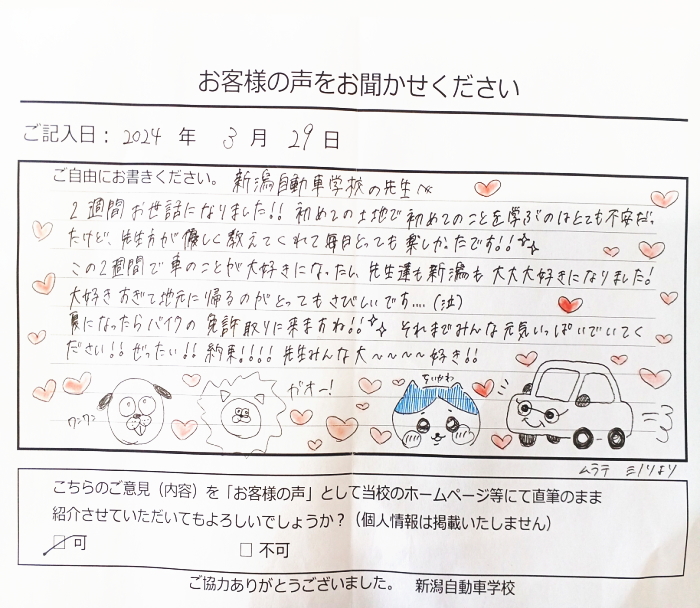 お客様の声をお聞かせください
ご記入日： 2024 年 3 月 29 日
ご自由にお書きください。 新潟自動車学校の先生へ
2週間お世話になりました!! 初めての土地で初めてのことを学ぶのはとても不安だっ
たけど、先生方が優しく教えてくれて毎日とっても楽しかったです!!
この2週間で車のことが大好きになったし、先生達も新潟も大大大好きになりました!
大好きすぎて地元に帰るのがとってもさびしいです....(泣)
夏になったらバイクの免許取りに来ますね!! それまでみんな元気いっぱいでいてく
ださい!! ぜったい!! 約束!!!! 先生みんな大〜〜〜〜好き!!
ワンワン
ガオー!
ちいかわ
ムラテ ミノリより
こちらのご意見（内容）を「お客様の声」として当校のホームページ等にて直筆のまま
紹介させていただいてもよろしいでしょうか？（個人情報は掲載いたしません）
可 不可
ご協力ありがとうございました。 新潟自動車学校